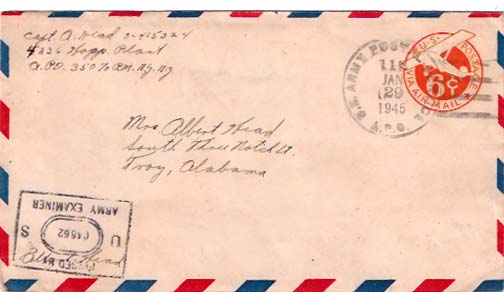 Capt A. Head 0-415324
4336 Hosp. Plant
A.P.O. 350 % P.M. Ny. Ny.
U.S. ARMY POSTAL
11
JAN
29
1945
A.P.O.
U.S. POSTAGE
6¢
VIA AIR MAIL
Mrs Albert Head
South Three Notch St.
Troy, Alabama
PASSED BY
U S
04662
ARMY EXAMINER
Albert Head